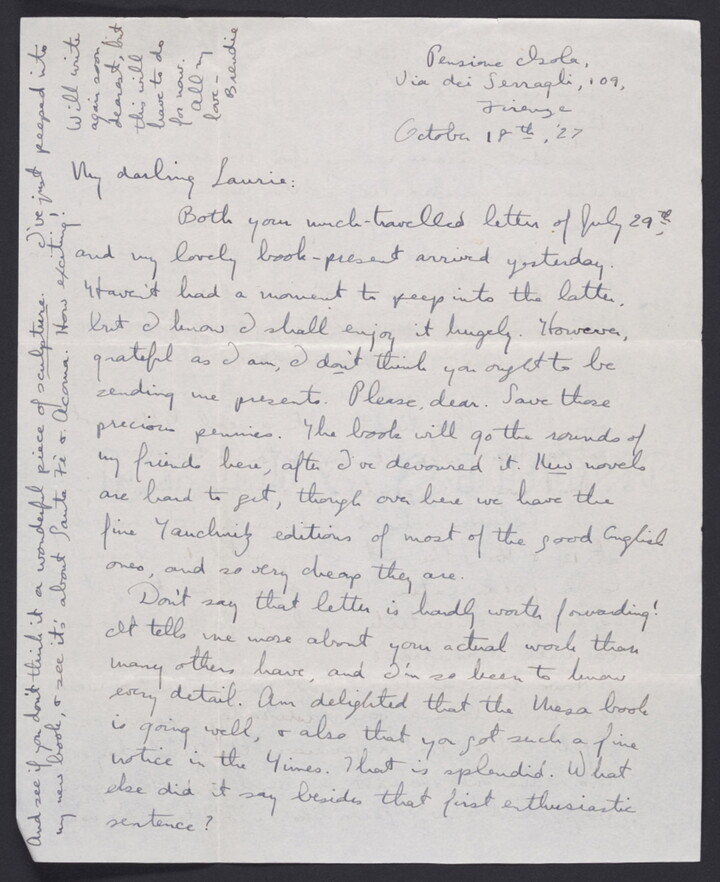 Pensione Isola,
Via dei Serragli, 109,
Firenze
October 18th, '27
My darling Laurie:
Both your much-travelled letter of July 29th,
and my lovely book-present arrived yesterday.
Haven't had a moment to peep into the latter,
but I know I shall enjoy it hugely. However,
grateful as I am, I don't think you ought to be
sending me presents. Please, dear. Save those
precious pennies. The book will go the rounds of
my friends here, after I've devoured it. New novels
are hard to get, though over here we have the
fine Tauchnitz editions of most of the good English
ones, and so very cheap they are.
Don't say that letter is hardly worth forwarding!
It tells me more about your actual work than
many others have, and I'm so keen to know
every detail. Am delighted that the Mesa book
is going well, & also that you got such a fine
notice in the Times. That is splendid. What
else did it say besides that first enthusiastic
sentence?
And see if you don't think it a wonderful piece of sculpture. I've just peeped into
my new book, & see it's about Santa Fé & Acoma. How exciting!
Will write
again soon
dearest, but
this will
have to do
for now.
All my
love –
Brendie